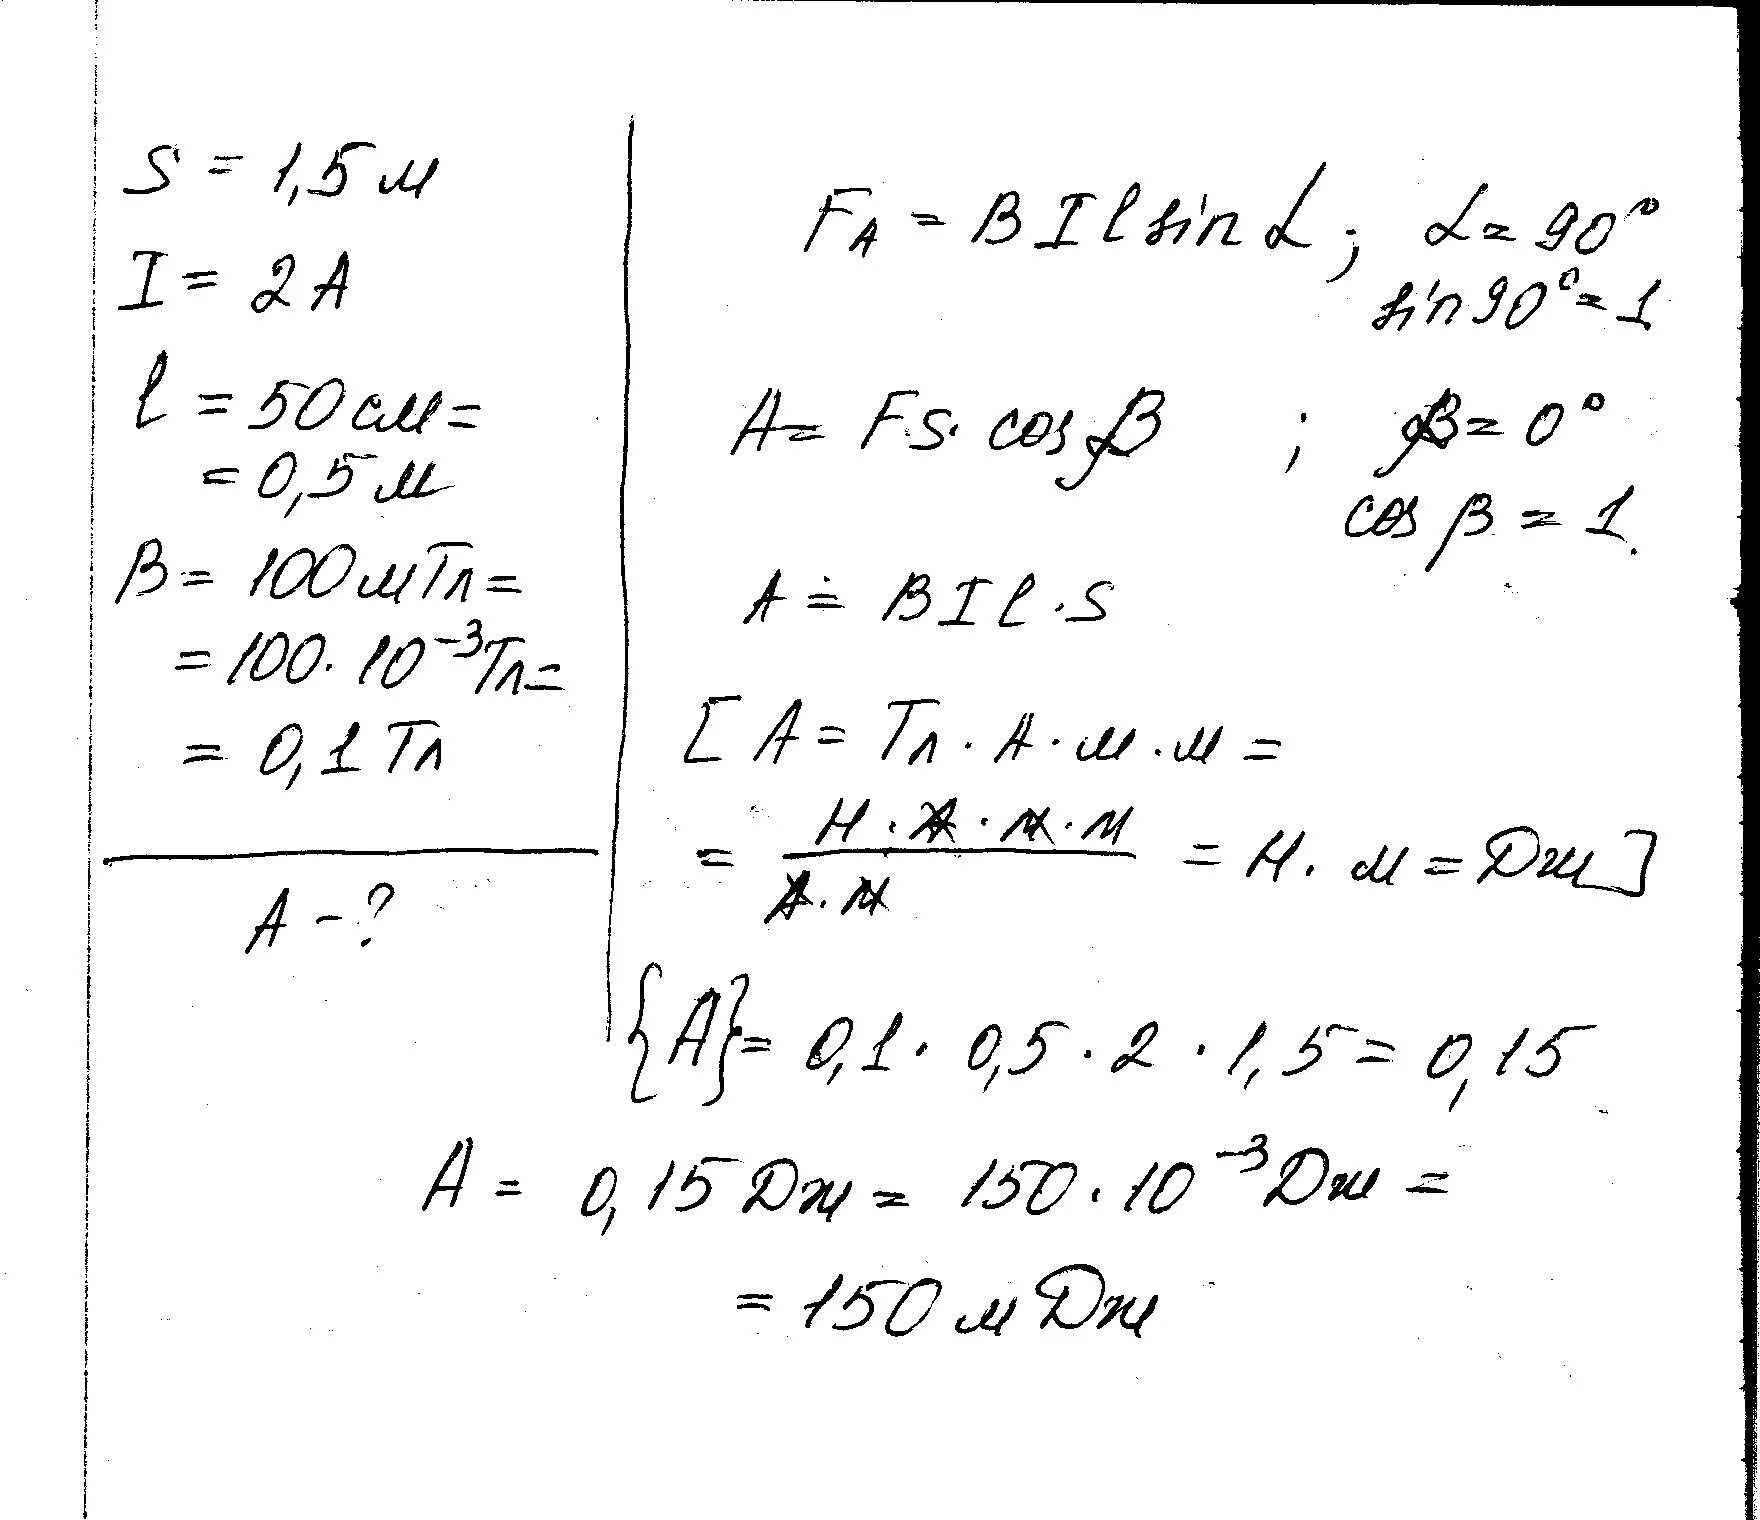 S = 1,5 м
I = 2 А
l = 50 см =
= 0,5 м
B = 100 мТл =
= 100 · 10⁻³ Тл =
= 0,1 Тл
А - ?
F_A = B I l sin α ; α = 90°
sin 90° = 1
A = F S · cos β ; β = 0°
cos β = 1.
A = B I l · S
[ A = Тл · А · м · м =
= Н · А · м · м / А · м = Н · м = Дж ]
{A} = 0,1 · 0,5 · 2 · 1,5 = 0,15
A = 0,15 Дж = 150 · 10⁻³ Дж =
= 150 м Дж